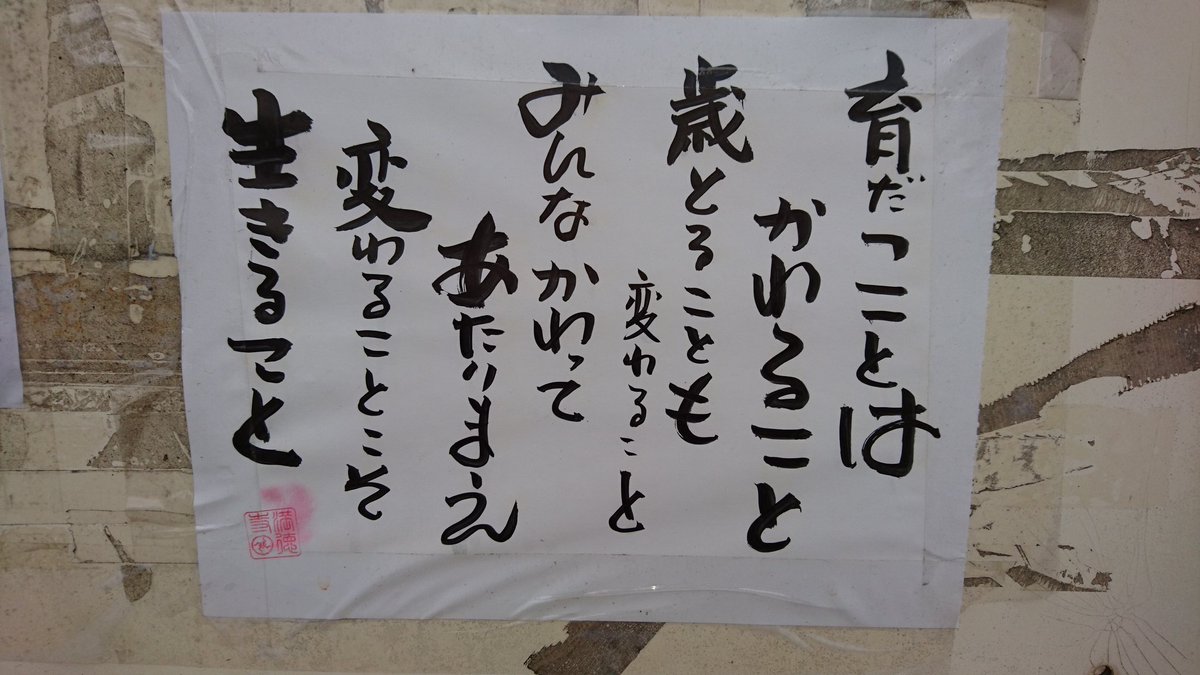 育だつことは
かわること
歳とることも
変わること
みんなかわって
あたりまえ
変わることこそ
生きること
満徳寺